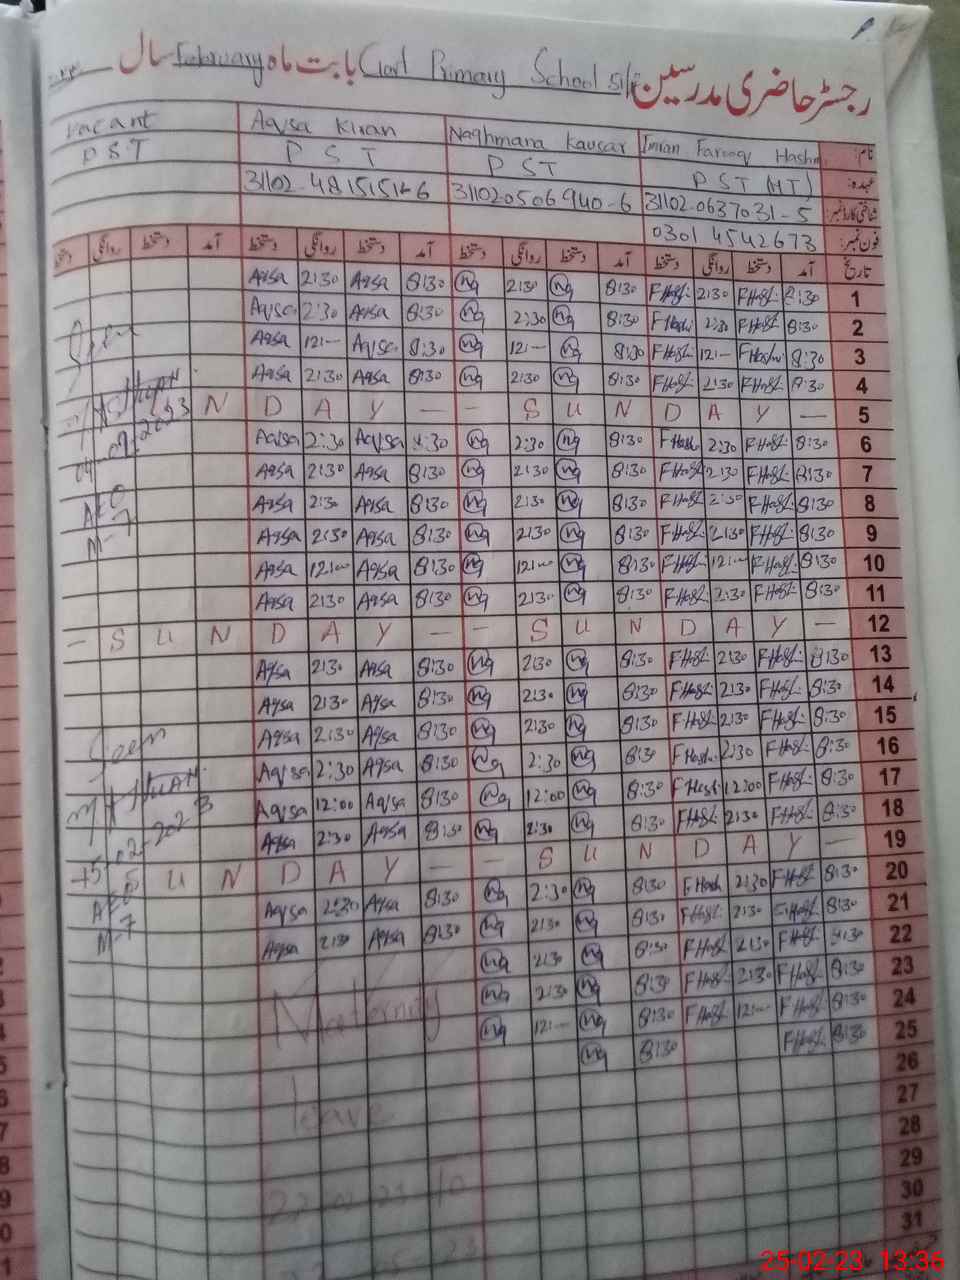 رجسٹر حاضری مدرسین Govt Primary School بابت ماہ February سال
نام: Imran Farooq Hashmi Naghmana Kausar Aqsa Kiran Vacant
عہدہ: PST (HT) PST PST PST
شناختی کارڈ نمبر: 31102-0637031-5 311020506940-6
فون نمبر: 0301 4542673
تاریخ آمد دستخط روانگی دستخط آمد دستخط روانگی دستخط آمد دستخط روانگی دستخط آمد دستخط روانگی دستخط
Aqsa 2:30 Aqsa 8:30 Nq 2:30 Nq 8:30 F Hash 2:30 F Hash 8:30 1
Aqsa 2:30 Aqsa 8:30 Nq 2:30 Nq 8:30 F Hash 2:30 F Hash 8:30 2
Aqsa 12:— Aqsa 8:30 Nq 12:— Nq 8:30 F Hash 12:— F Hash 8:30 3
Aqsa 2:30 Aqsa 8:30 Nq 2:30 Nq 8:30 F Hash 2:30 F Hash 8:30 4
N D A Y — — S U N D A Y — 5
04-02-2023
Aqsa 2:30 Aqsa 8:30 Nq 2:30 Nq 8:30 F Hash 2:30 F Hash 8:30 6
Aqsa 2:30 Aqsa 8:30 Nq 2:30 Nq 8:30 F Hash 2:30 F Hash 8:30 7
AEO Aqsa 2:30 Aqsa 8:30 Nq 2:30 Nq 8:30 F Hash 2:30 F Hash 8:30 8
M-7 Aqsa 2:30 Aqsa 8:30 Nq 2:30 Nq 8:30 F Hash 2:30 F Hash 8:30 9
Aqsa 12:— Aqsa 8:30 Nq 12:— Nq 8:30 F Hash 12:— F Hash 8:30 10
Aqsa 2:30 Aqsa 8:30 Nq 2:30 Nq 8:30 F Hash 2:30 F Hash 8:30 11
— S U N D A Y — — S U N D A Y — 12
Aqsa 2:30 Aqsa 8:30 Nq 2:30 Nq 8:30 F Hash 2:30 F Hash 8:30 13
Aqsa 2:30 Aqsa 8:30 Nq 2:30 Nq 8:30 F Hash 2:30 F Hash 8:30 14
Seen Aqsa 2:30 Aqsa 8:30 Nq 2:30 Nq 8:30 F Hash 2:30 F Hash 8:30 15
Aqsa 2:30 Aqsa 8:30 Nq 2:30 Nq 8:30 F Hash 2:30 F Hash 8:30 16
Aqsa 12:00 Aqsa 8:30 Nq 12:00 Nq 8:30 F Hash 12:00 F Hash 8:30 17
Aqsa 2:30 Aqsa 8:30 Nq 2:30 Nq 8:30 F Hash 2:30 F Hash 8:30 18
15-02-2023
S U N D A Y — — S U N D A Y — 19
AEO Aqsa 2:30 Aqsa 8:30 Nq 2:30 Nq 8:30 F Hash 2:30 F Hash 8:30 20
M-7 Aqsa 2:30 Aqsa 8:30 Nq 2:30 Nq 8:30 F Hash 2:30 F Hash 8:30 21
Nq 2:30 Nq 8:30 F Hash 2:30 F Hash 8:30 22
Maternity Nq 2:30 Nq 8:30 F Hash 2:30 F Hash 8:30 23
Nq 12:— Nq 8:30 F Hash 12:— F Hash 8:30 24
Nq 8:30 F Hash 8:30 25
26
leave 27
28
29
30
31
25-02-23 13:36